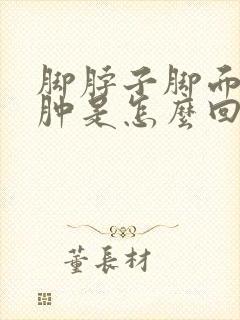 脚脖子脚而
肿是怎麼回
董長材